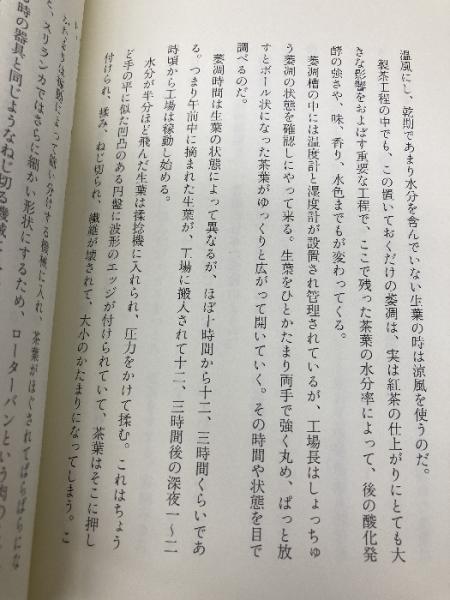 温風にし、乾期であまり水分を含んでいない生葉の時は涼風を使うのだ。
製茶工程の中でも、この置いておくだけの萎凋は、実は紅茶の仕上がりにとても大
きな影響をおよぼす重要な工程で、ここで残った茶葉の水分率によって、後の酸化発
酵の強さや、味、香り、水色までもが変わってくる。
萎凋槽の中には温度計と湿度計が設置され管理されているが、工場長はしょっちゅ
う萎凋の状態を確認しにやって来る。生葉をひとかたまり両手で強く丸め、ぱっと放
すとボール状になった茶葉がゆっくりと広がって開いていく。その時間や状態を目で
調べるのだ。
萎凋時間は生葉の状態によって異なるが、ほぼ十時間から十二、三時間くらいであ
る。つまり午前中に摘まれた生葉が、工場に搬入されて十二、三時間後の深夜一〜二
時頃から工場は稼動し始める。
水分が半分ほど飛んだ生葉は揉捻機に入れられ、圧力をかけて揉む。これはちょう
ど手の平に似た凹凸のある円盤に波形のエッジが付けられていて、茶葉はそこに押し
付けられ、揉み、ねじ切られ、繊維が壊されて、大小のかたまりになってしまう。こ
分けする機械に入れ、茶葉がほぐされてばらばらにな
と、スリランカではさらに細かい形状にするため、ローターバンという
時の器具と同じようなねじ切る機械に